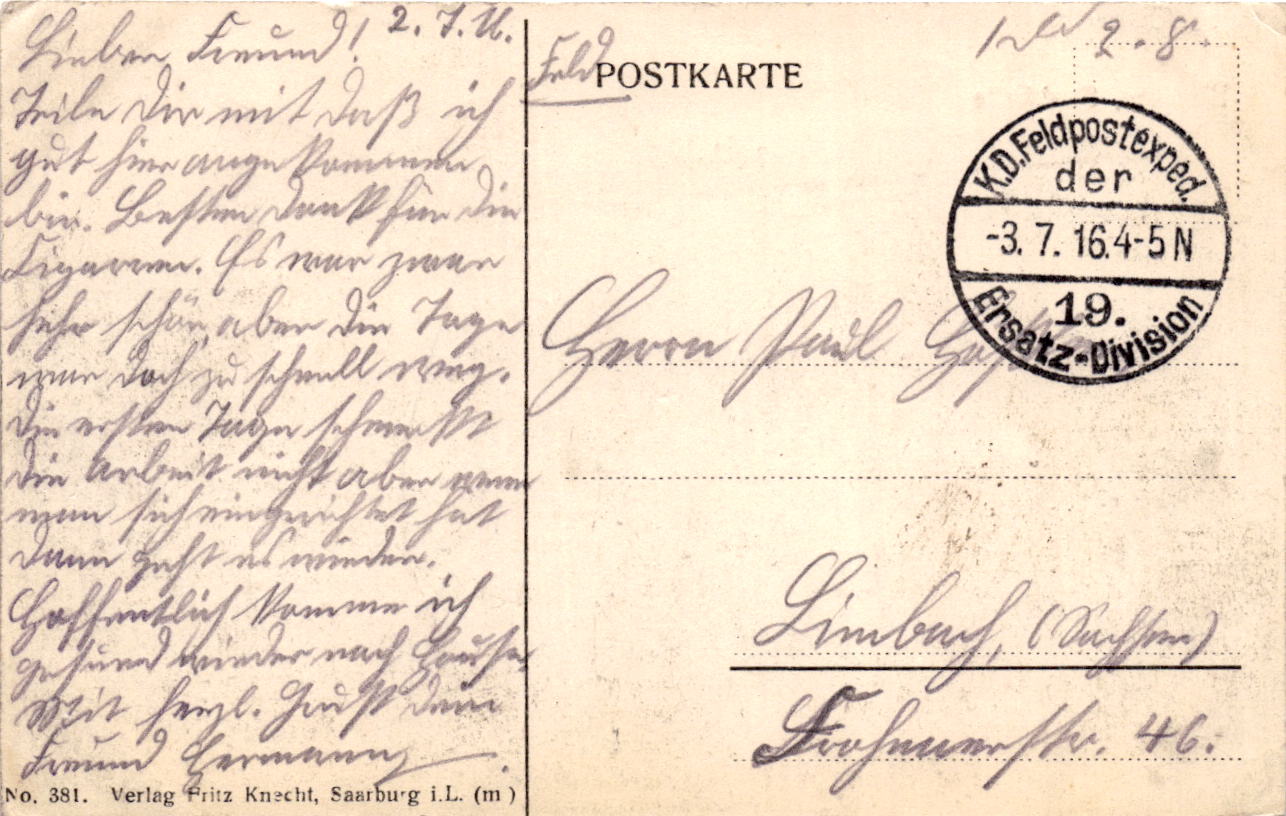 2. 7. 16.
Lieber Freund!
Teile Dir mit daß ich
gut hier angekommen
bin. Besten Dank für die
Zigarren. Es war zwar
sehr schön, aber die Tage
war doch zu schnell weg.
Die ersten Tage schmeckt
die Arbeit nicht aber wenn
man sich eingerichtet hat
dann geht es wieder.
Hoffentlich komme ich
gesund wieder nach Hause
Mit herzl. Gruß dein
Freund Hermann
No. 381. Verlag Fritz Knecht, Saarburg i.L. (m)
Feld
POSTKARTE
2. 8.
K.D. Feldpostexped.
der
-3. 7. 16. 4-5 N
19.
Ersatz-Division
Herrn Paul
Limbach, (Sachsen)
Frohnaerstr. 46.